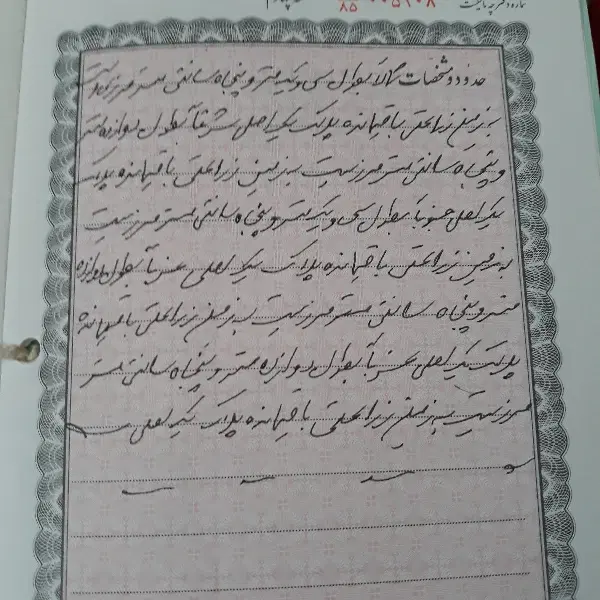 شماره دفترچه مالکیت
۸۵
حدود و مشخصات شمالاً بطول سی و یک متر و پنجاه سانتی متر مرزیست
به زمین زراعتی باقیمانده پلاک یک اصلی شرقاً بطول دوازده متر
و پنجاه سانتی متر مرزیست به زمین زراعتی باقیمانده پلاک
یک اصلی جنوباً بطول سی و یک متر و پنجاه سانتی متر مرزیست
به زمین زراعتی باقیمانده پلاک یک اصلی غرباً بطول دوازده
متر و پنجاه سانتی متر مرزیست به زمین زراعتی باقیمانده
پلاک یک اصلی غرباً بطول دوازده متر و پنجاه سانتی متر
مرزیست به زمین زراعتی باقیمانده پلاک یک اصلی